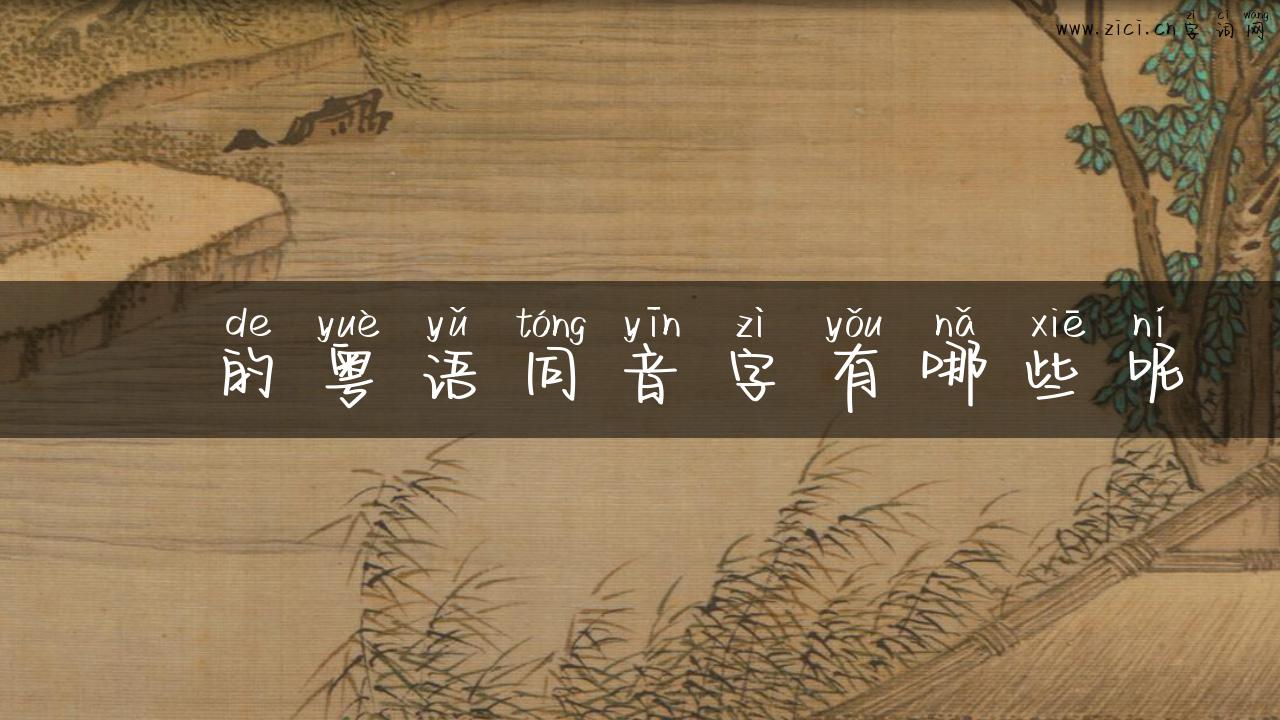 zì cí wǎng
www.zici.cn字词网
de yuè yǔ tóng yīn zì yǒu nǎ xiē ní
的粤语同音字有哪些呢